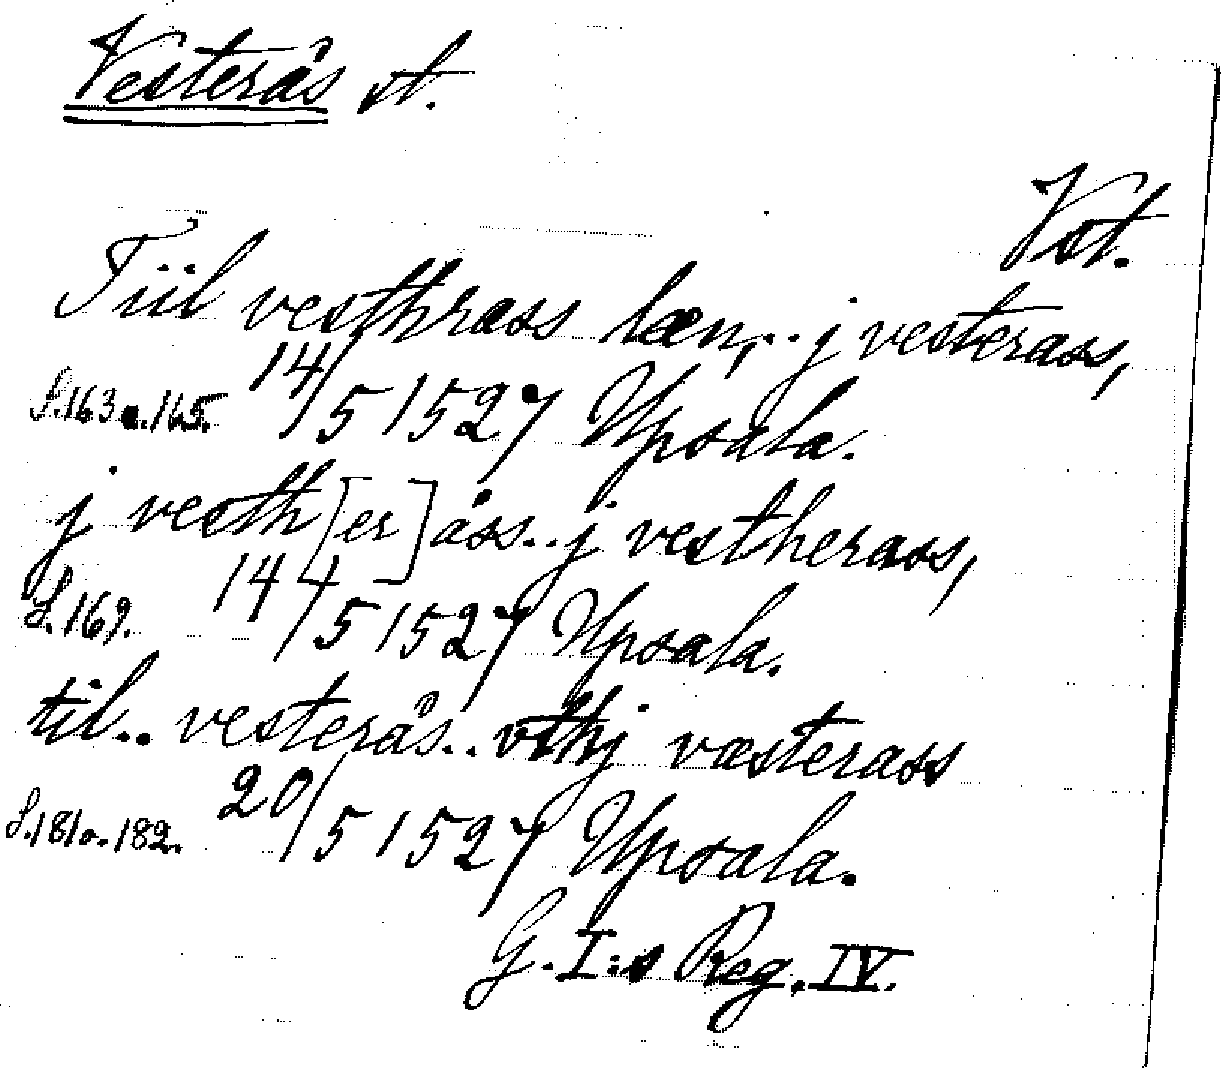 Vesterås st.
Vst.
Tiil vesthræss læn,.. j vesterass,
S. 163 o. 165. 14/5 1527 Upsala.
j vesth[er]åss.. j vestherass,
S. 169. 14/5 1527 Upsala.
til.. vesterås.. vthj væsterass
S. 181 o. 182. 20/5 1527 Upsala.
G. I:s Reg. IV.